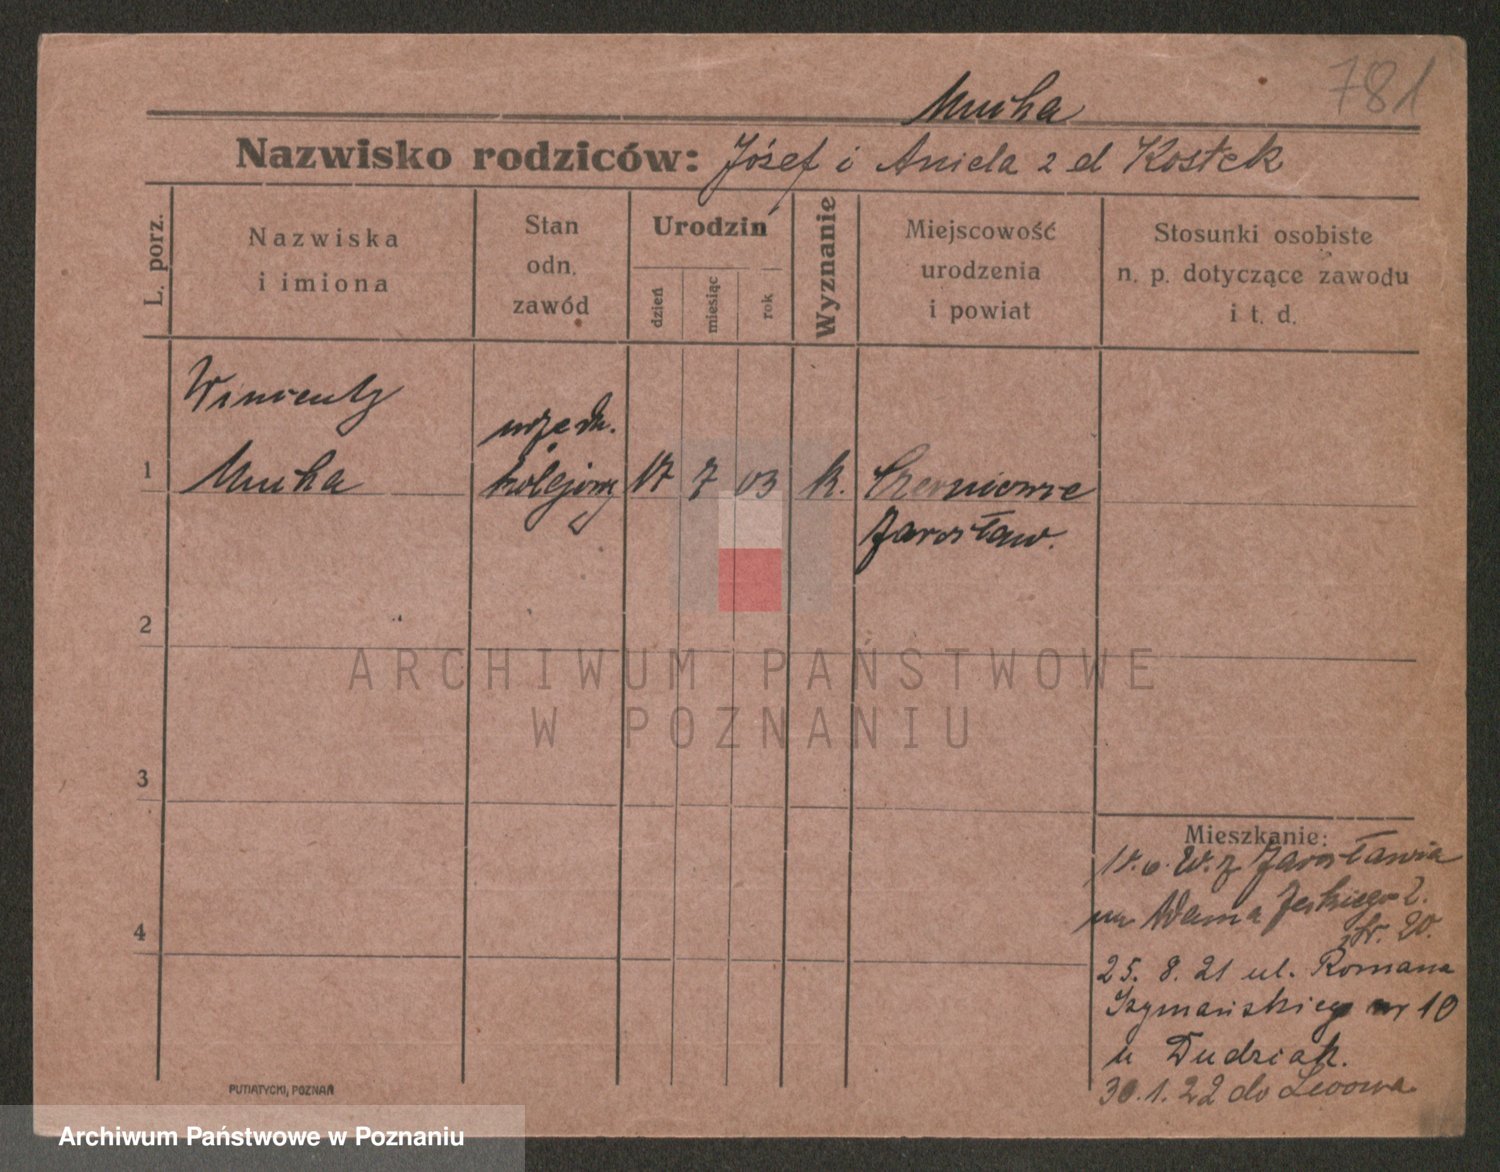 781
Mucha
Nazwisko rodziców: Józef i Aniela z d Kostek
L. porz.
Nazwiska
i imiona
Stan
odn.
zawód
Urodzin
dzień
miesiąc
rok
Wyznanie
Miejscowość
urodzenia
i powiat
Stosunki osobiste
n. p. dotyczące zawodu
i t. d.
Wincenty
urzedn.
1 Mucha kolejowy 17 7 03 k. Czerniowce
Jarosław.
2
ARCHIWUM PAŃSTWOWE
W POZNANIU
3
Mieszkanie:
z Jarosławia
4
str. 20.
25. 8. 21 ul. Romana
Szymańskiego nr 10
u Dudziak.
30. 1. 22 do Lwowa.
PUTIATYCKI, POZNAŃ
Archiwum Państwowe w Poznaniu